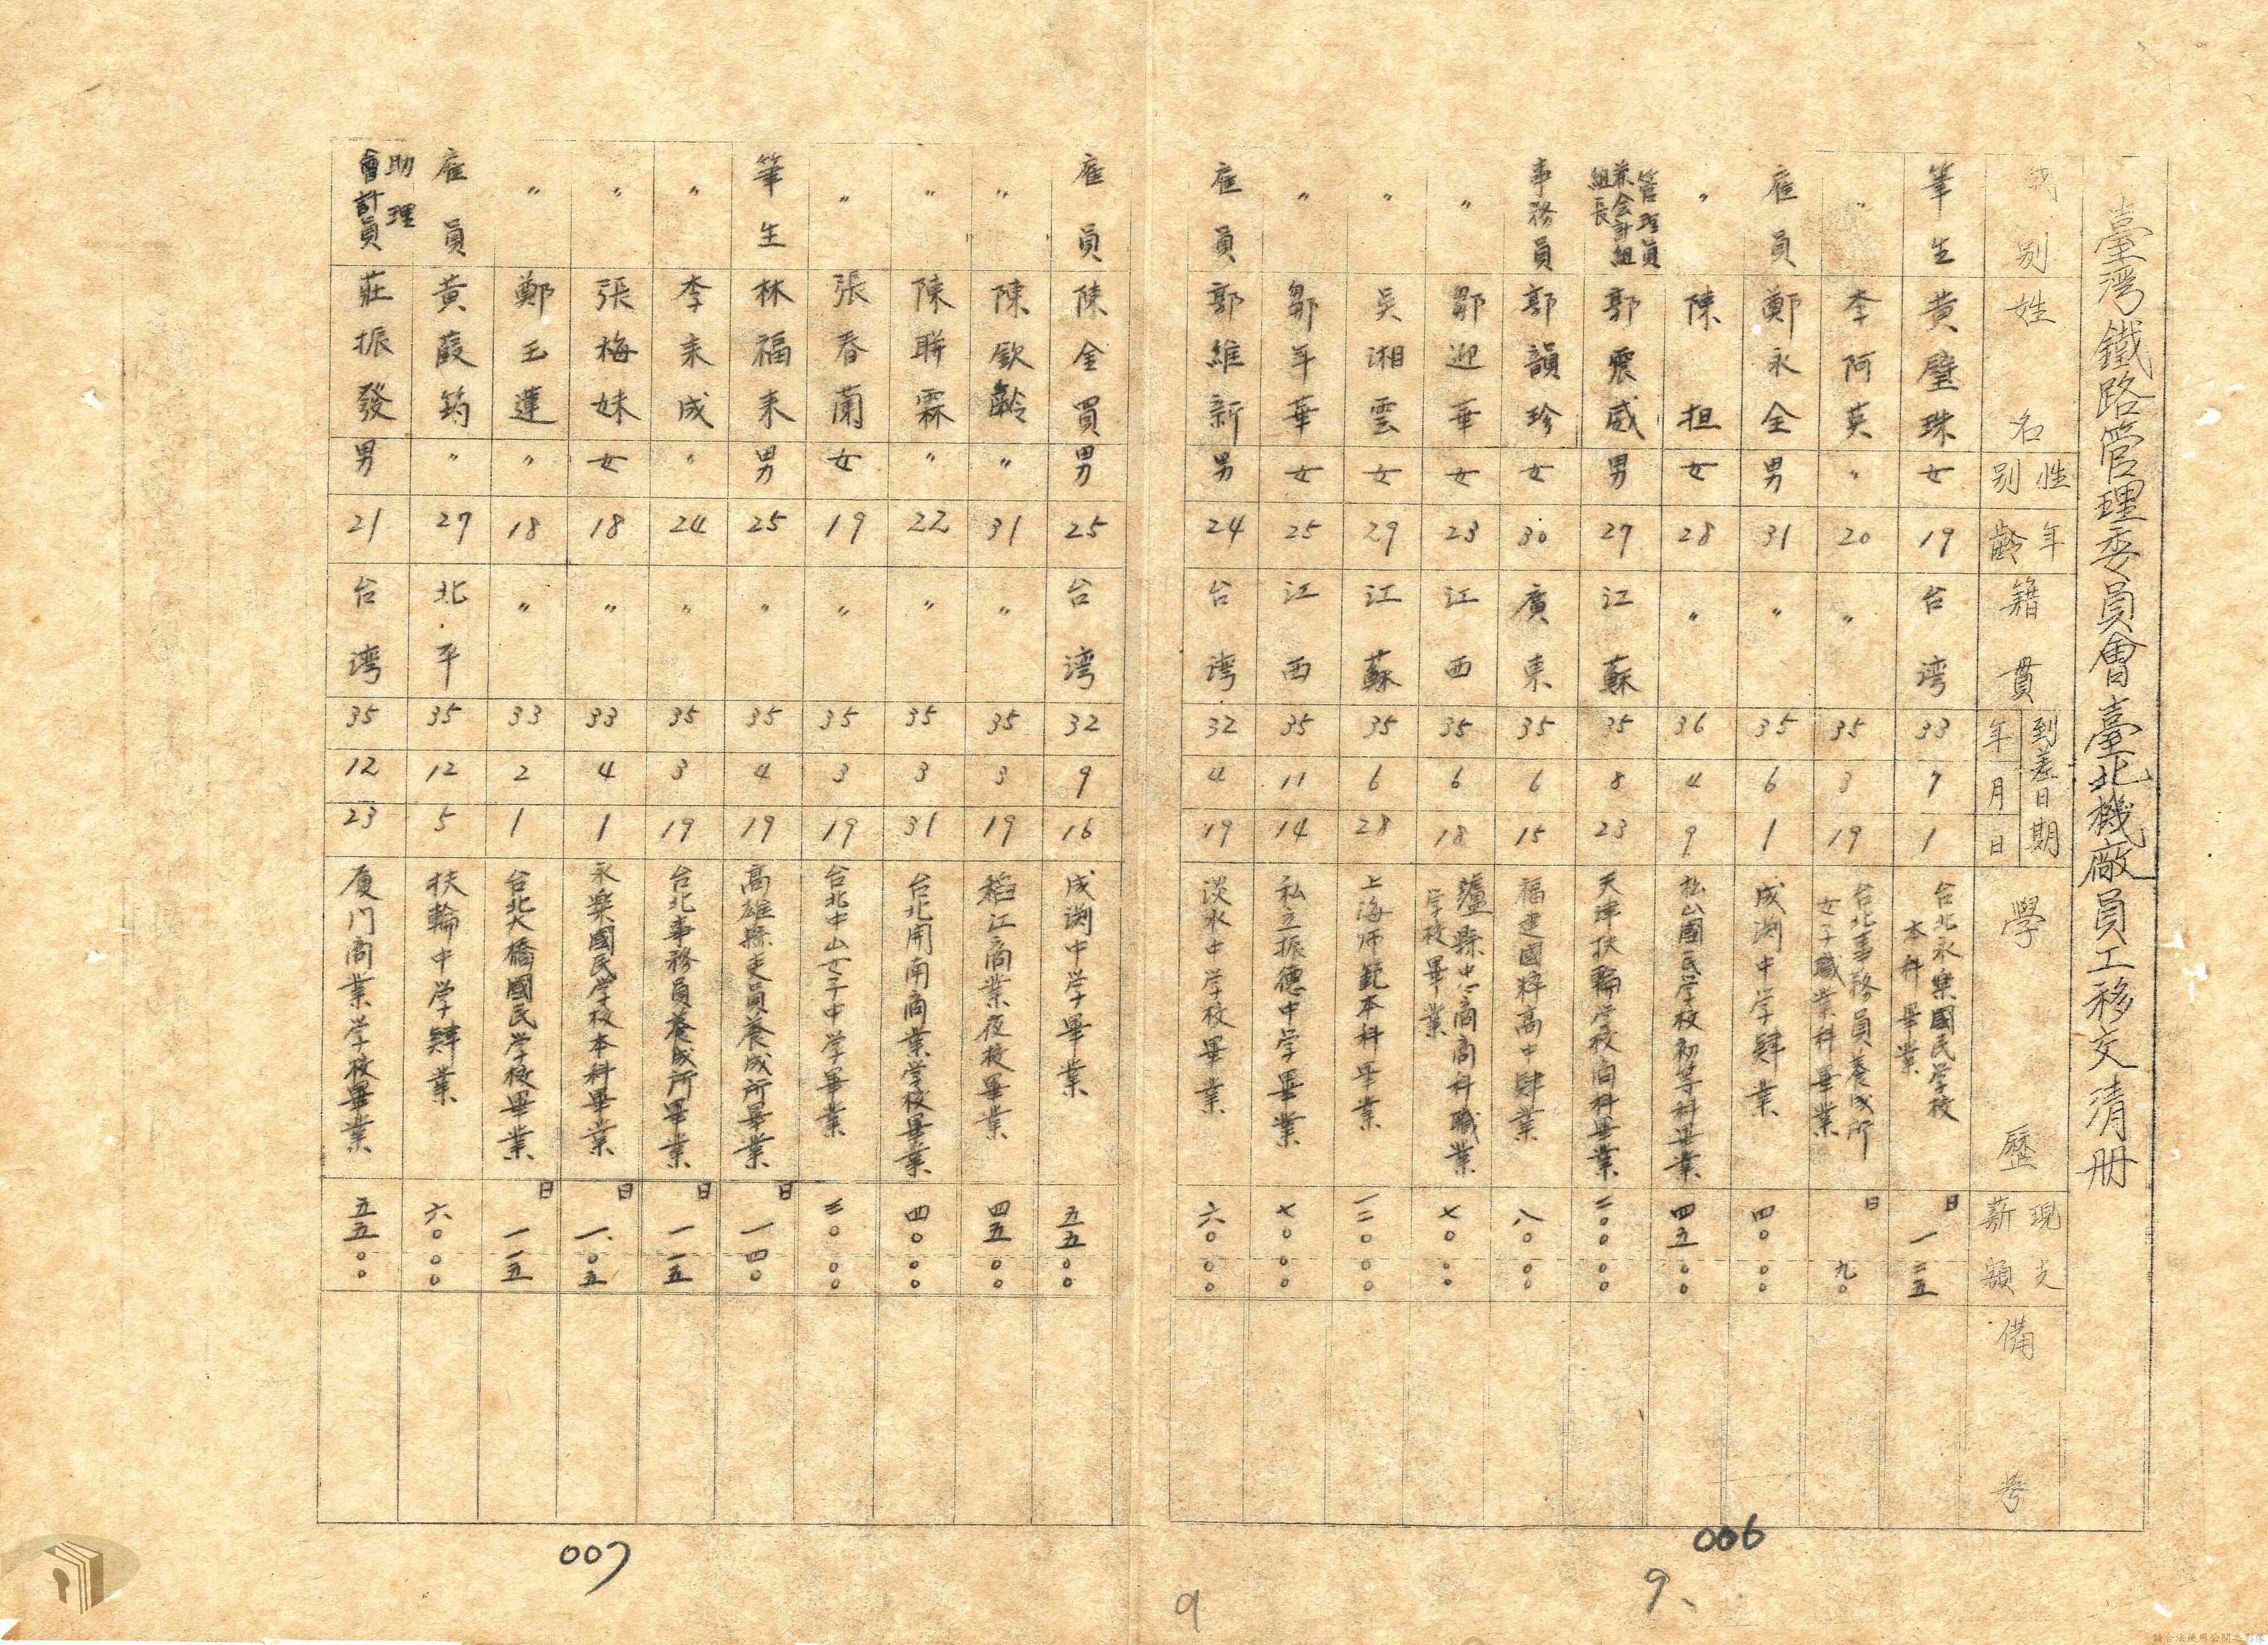 臺灣鐵路管理委員會臺北機廠員工移交清册
職別 姓名 性別 年齡 籍貫 到差日期 年 月 日 學歷 現支薪額 備考
筆生 黄璧珠 女 19 台湾 33 7 1 台北永樂國民学校本科畢業 日 一二五
〃 李阿英 〃 20 〃 35 3 19 台北事務員養成所女子職業科畢業 日 九〇
雇員 鄭永全 男 31 〃 35 6 1 成渕中学肄業 四〇〇〇
〃 陳担 女 28 〃 36 4 9 松山國民学校初等科畢業 四五〇〇
管理員兼会計組組長 郭震威 男 27 江蘇 35 8 23 天津扶輪学校商科畢業 二〇〇〇〇
事務員 郭韻珍 女 30 廣東 35 6 15 福建國粹高中肄業 八〇〇〇
〃 鄒迎華 女 23 江西 35 6 18 蘆縣忠商商科職業学校畢業 七〇〇〇
〃 吳湘雲 女 29 江蘇 35 6 28 上海师範本科畢業 一二〇〇〇
〃 鄒年華 女 25 江西 35 11 14 私立振德中学畢業 七〇〇〇
雇員 郭維新 男 24 台湾 32 4 19 淡水中学校畢業 六〇〇〇
006
9、
雇員 陳金買 男 25 台湾 32 9 16 成渕中学畢業 五五〇〇
〃 陳欽齡 〃 31 〃 35 3 19 稻江商業夜校畢業 四五〇〇
〃 陳聯霖 〃 22 〃 35 3 31 台北開南商業学校畢業 四〇〇〇
〃 張春蘭 女 19 〃 35 3 19 台北中山女子中学畢業 三〇〇〇
筆生 林福来 男 25 〃 35 4 19 高雄縣吏員養成所畢業 日 一四〇
〃 李来成 〃 24 〃 35 3 19 台北事務員養成所畢業 日 一一五
〃 張梅妹 女 18 〃 33 4 1 永樂國民学校本科畢業 日 一〇五
〃 鄭玉蓮 〃 18 〃 33 2 1 台北大橋國民学校畢業 日 一一五
雇員 黄葭筠 〃 27 北平 35 12 5 扶輪中学肄業 六〇〇〇
助理會計員 莊振發 男 21 台湾 35 12 23 厦门商業学校畢業 五五〇〇
007
9